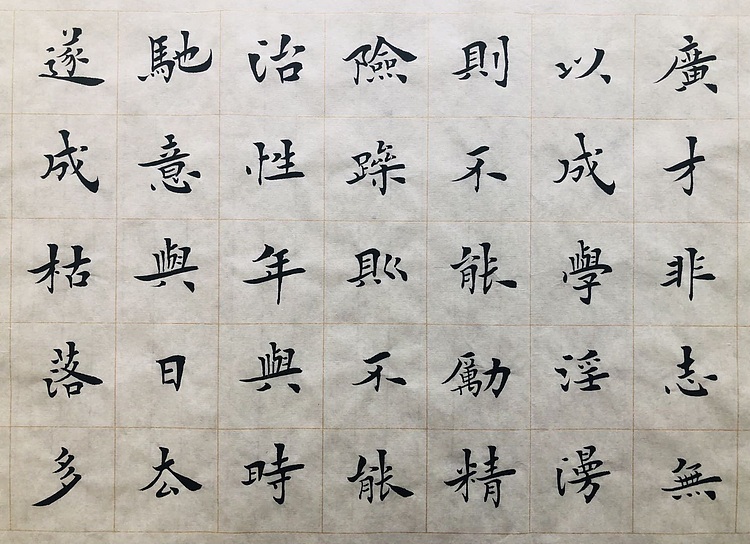 廣才非志無
以成學淫漫
則不能勵精
險躁則不能
治性年與時
馳意與日去
遂成枯落多